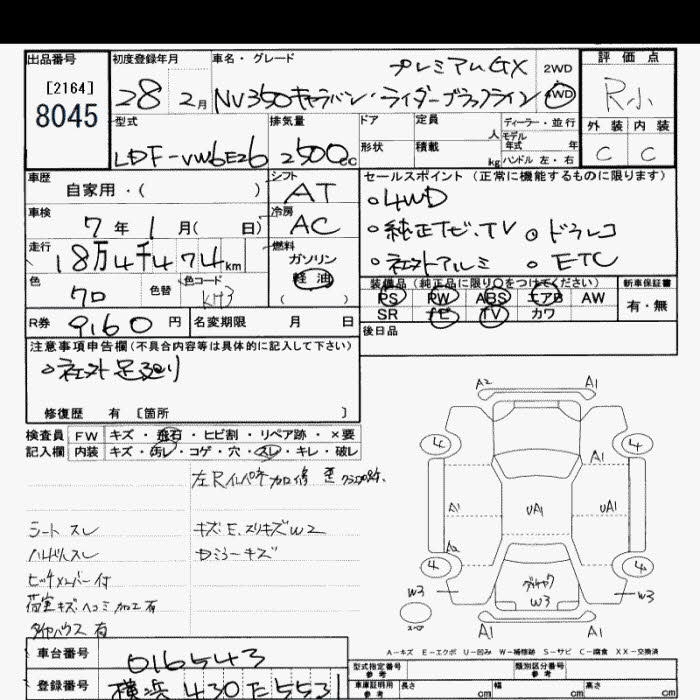 出品番号 初度登録年月 車名・グレード 評価点
[2164] 8045
28 2月 プレミアムGX 2WD
NV350キャラバン・ライダーブラックライン 4WD R小
型式 排気量 ドア 定員 人 ディーラー・並行 外装 内装
LDF-VW6E26 2500cc 形状 積載 kg モデル年式 年 C C
ハンドル 左・右
車歴 自家用・( ) シフト AT セールスポイント(正常に機能するものに限ります)
車検 7年1月( 日) 冷房 AC 4WD
純正ナビ.TV ドラレコ
走行 18万4千474km 燃料 ガソリン 軽油 ( ) 社外アルミ ETC
色 クロ 色替 色コード KH3 装備品(純正品に限り○をつけてください) 新車保証書
PS PW ABS エアB AW 有・無
R券 9160円 名変期限 月 日 SR ナビ TV カワ
後日品
注意事項申告欄(不具合内容等は具体的に記入して下さい)
社外足廻り
修復歴 有 〔箇所 〕
検査員 FW キズ・飛石・ヒビ割・リペア跡・×要
記入欄 内装 キズ・汚レ・コゲ・穴・スレ・キレ・破レ
左Rインパネ加修 歪
シート スレ キズE.スリキズW2
ハンドルスレ 
ドミラーキズ
ヒッチメンバー付
荷室キズ.ヘコミ加工有
タイヤハウス 有
A2 A1
A1
A1 UA1 UA1
A2
W3 W3 W3
スペア
A1 A1
A-キズ E-エクボ U-凹み W-補修跡 S-サビ C-腐食 XX-交換済
車台番号 016543
登録番号 横浜 430 た 5531
型式指定番号 参考 類別区分番号 参考
車庫証明用 参考 長さ cm 幅 cm 高さ cm